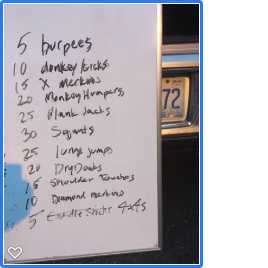 5 burpees
10 donkey kicks
15 X merkins
20 Monkey Humpers
25 Plank Jacks
30 Squats
25 Lunge jumps
20 Dry Docks
15 Shoulder Touches
10 Diamond merkins
5 4x4s
72